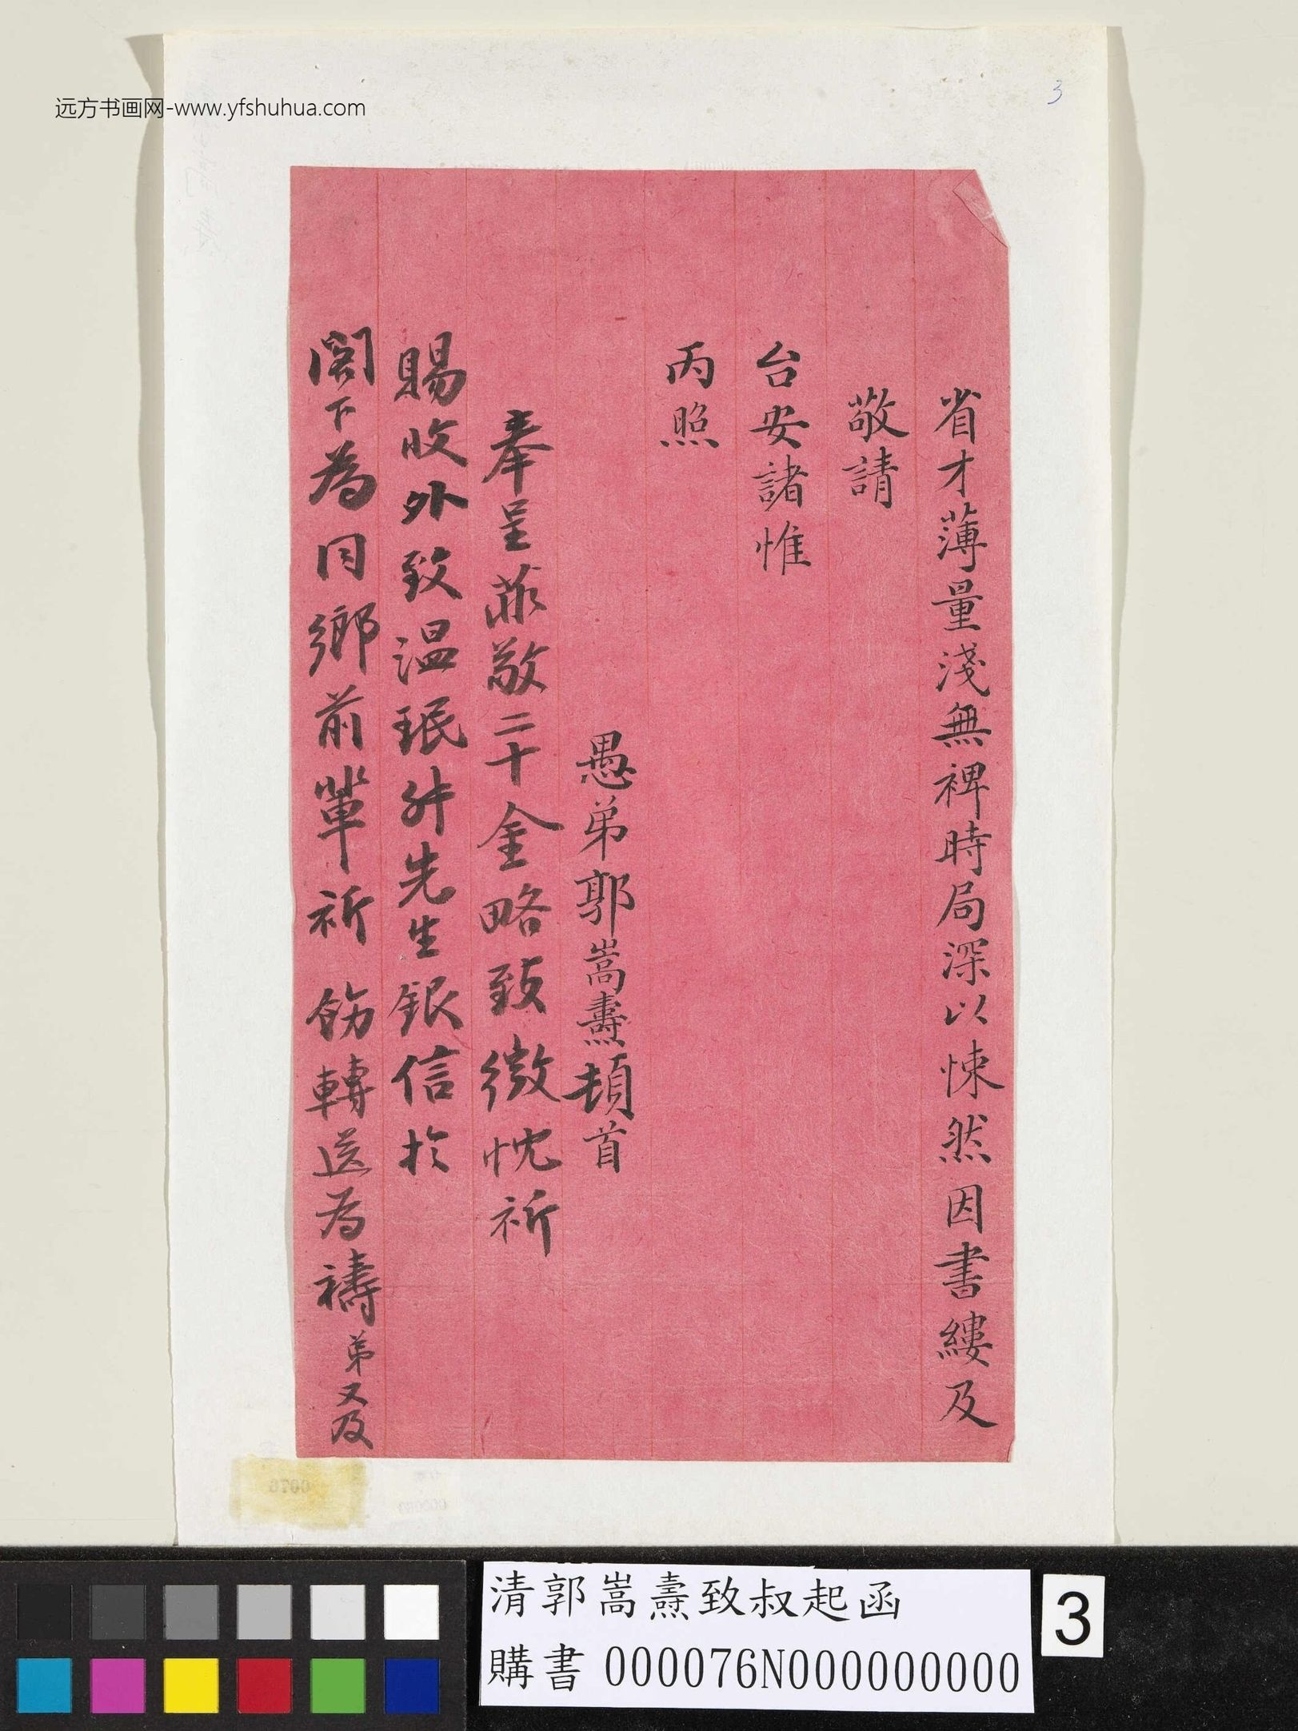 远方书画网-www.yfshuhua.com
3
省才薄量淺無裨時局深以悚然因書縷及
敬請
台安諸惟
丙照
愚弟郭嵩燾頓首
奉呈菲敬二十金略致微忱祈
賜收外致温珉舛先生銀信於
閣下為同鄉前輩祈 飭轉送為禱弟又及
0076
清郭嵩燾致叔起函
購書 000076N000000000
3